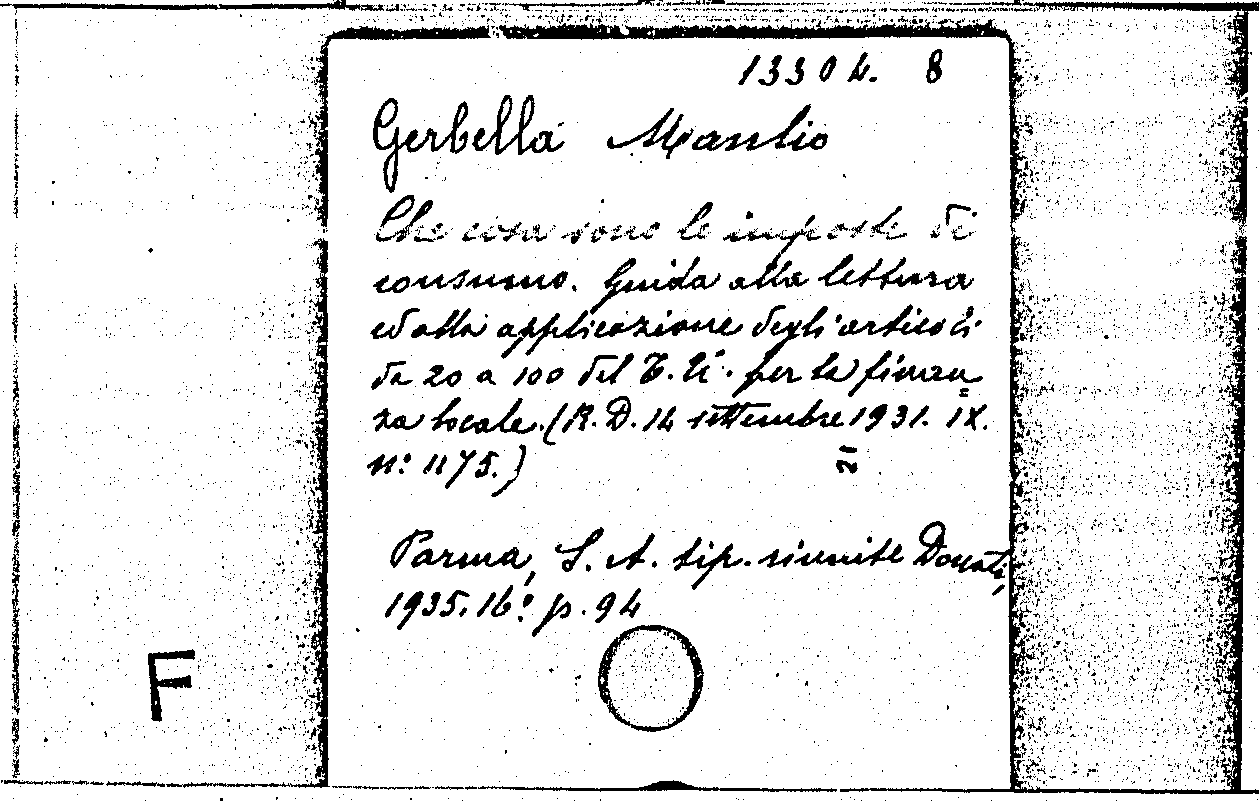 13304. 8
Gerbella Manlio
Che cosa sono le imposte di
consumo. Guida alla lettura
ed alla applicazione degli articoli
da 20 a 100 del T. U. per la finan=
za locale. (R. D. 14 settembre 1931. IX.
n: 1175.)
21
Parma, S. A. tip. riunite Donati,
1935. 16º p. 94
F